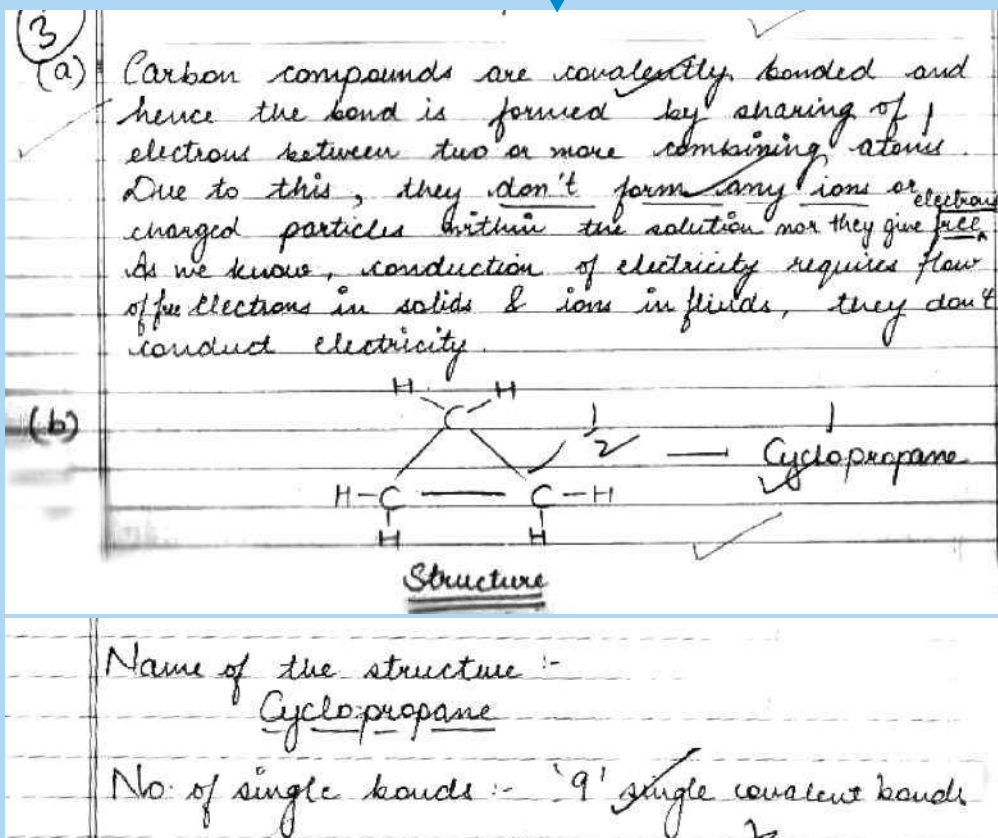 3
(a) Carbon compounds are covalently bonded and
hence the bond is formed by sharing of
electrons between two or more combining atoms.
Due to this, they don't form any ions or
charged particles within the solution nor they give free electrons
As we know, conduction of electricity requires flow
of free electrons in solids & ions in fluids, they don't
conduct electricity.
(b)
H H
C
1/2 — 1 Cyclopropane
H-C C-H
H H
Structure
Name of the structure :-
Cyclopropane
No. of single bonds :- '9' single covalent bonds